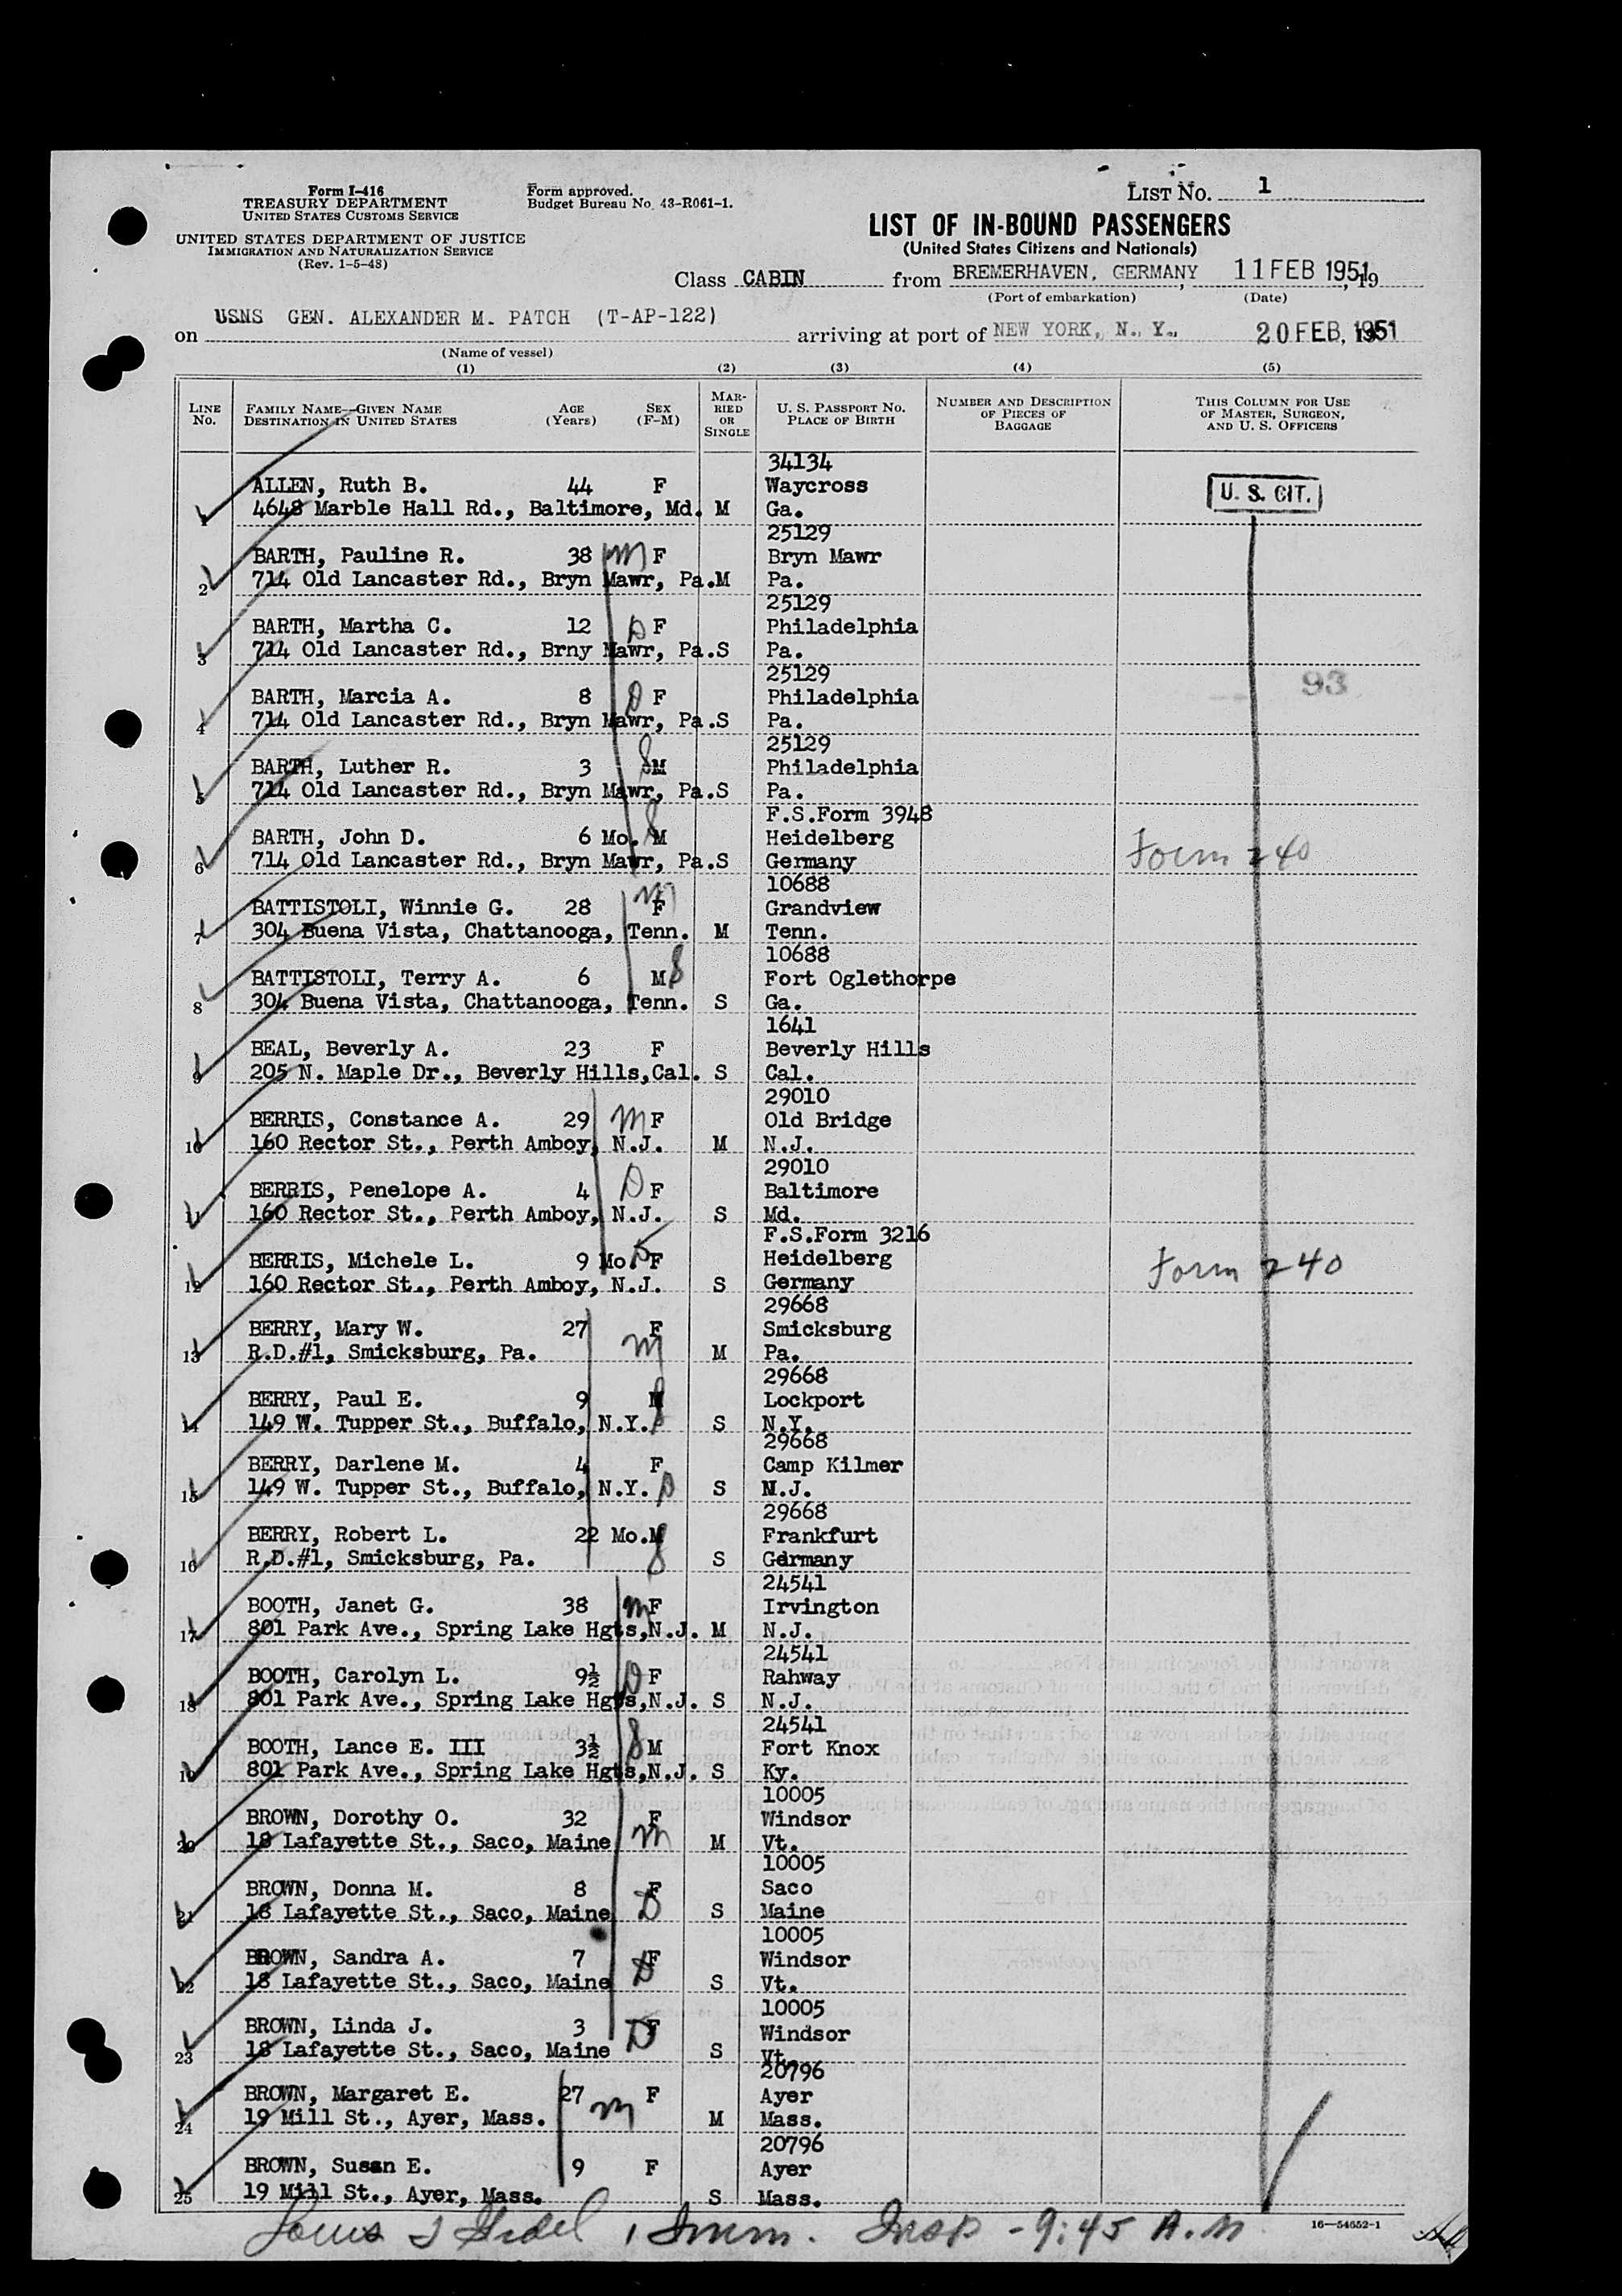 Form I-416
TREASURY DEPARTMENT
UNITED STATES CUSTOMS SERVICE
UNITED STATES DEPARTMENT OF JUSTICE
IMMIGRATION AND NATURALIZATION SERVICE
(Rev. 1-5-48)
Form approved.
Budget Bureau No. 43-R061-1.
LIST NO. 1
LIST OF IN-BOUND PASSENGERS
(United States Citizens and Nationals)
Class CABIN from BREMERHAVEN, GERMANY, 11 FEB 1951, 19
(Port of embarkation) (Date)
on USNS GEN. ALEXANDER M. PATCH (T-AP-122) arriving at port of NEW YORK, N. Y., 20 FEB, 1951
(Name of vessel)
(1) (2) (3) (4) (5)
LINE No. FAMILY NAME—GIVEN NAME DESTINATION IN UNITED STATES AGE (Years) SEX (F-M) MARRIED OR SINGLE U. S. PASSPORT NO. PLACE OF BIRTH NUMBER AND DESCRIPTION OF PIECES OF BAGGAGE THIS COLUMN FOR USE OF MASTER, SURGEON, AND U. S. OFFICERS
34134
ALLEN, Ruth B. 44 F Waycross U. S. CIT.
1 4648 Marble Hall Rd., Baltimore, Md. M Ga.
25129
BARTH, Pauline R. 38 m F Bryn Mawr
2 714 Old Lancaster Rd., Bryn Mawr, Pa. M Pa.
25129
BARTH, Martha C. 12 D F Philadelphia
3 714 Old Lancaster Rd., Brny Mawr, Pa. S Pa.
25129
BARTH, Marcia A. 8 D F Philadelphia 93
4 714 Old Lancaster Rd., Bryn Mawr, Pa. S Pa.
25129
BARTH, Luther R. 3 M Philadelphia
5 714 Old Lancaster Rd., Bryn Mawr, Pa. S Pa.
F.S.Form 3948
BARTH, John D. 6 Mo. M Heidelberg Form 240
6 714 Old Lancaster Rd., Bryn Mawr, Pa. S Germany
10688
BATTISTOLI, Winnie G. 28 m F Grandview
7 304 Buena Vista, Chattanooga, Tenn. M Tenn.
10688
BATTISTOLI, Terry A. 6 M Fort Oglethorpe
8 304 Buena Vista, Chattanooga, Tenn. S Ga.
1641
BEAL, Beverly A. 23 F Beverly Hills
9 205 N. Maple Dr., Beverly Hills, Cal. S Cal.
29010
BERRIS, Constance A. 29 m F Old Bridge
10 160 Rector St., Perth Amboy, N.J. M N.J.
29010
BERRIS, Penelope A. 4 D F Baltimore
11 160 Rector St., Perth Amboy, N.J. S Md.
F.S.Form 3216
BERRIS, Michele L. 9 Mo. F Heidelberg Form 240
12 160 Rector St., Perth Amboy, N.J. S Germany
29668
BERRY, Mary W. 27 F Smicksburg
13 R.D.#1, Smicksburg, Pa. m M Pa.
29668
BERRY, Paul E. 9 M Lockport
14 149 W. Tupper St., Buffalo, N.Y. S N.Y.
29668
BERRY, Darlene M. 4 F Camp Kilmer
15 149 W. Tupper St., Buffalo, N.Y. D S N.J.
29668
BERRY, Robert L. 22 Mo. M Frankfurt
16 R.D.#1, Smicksburg, Pa. S Germany
24541
BOOTH, Janet G. 38 m F Irvington
17 801 Park Ave., Spring Lake Hgts, N.J. M N.J.
24541
BOOTH, Carolyn L. 9½ D F Rahway
18 801 Park Ave., Spring Lake Hgts, N.J. S N.J.
24541
BOOTH, Lance E. III 3½ M Fort Knox
19 801 Park Ave., Spring Lake Hgts, N.J. S Ky.
10005
BROWN, Dorothy O. 32 F Windsor
20 18 Lafayette St., Saco, Maine m M Vt.
10005
BROWN, Donna M. 8 F Saco
21 18 Lafayette St., Saco, Maine D S Maine
10005
BROWN, Sandra A. 7 F Windsor
22 18 Lafayette St., Saco, Maine D S Vt.
10005
BROWN, Linda J. 3 D F Windsor
23 18 Lafayette St., Saco, Maine S Vt.
20796
BROWN, Margaret E. 27 F Ayer
24 19 Mill St., Ayer, Mass. m M Mass.
20796
BROWN, Susan E. 9 F Ayer
25 19 Mill St., Ayer, Mass. S Mass.
Louis Imm. Insp - 9:45 A.M.
16—54652-1